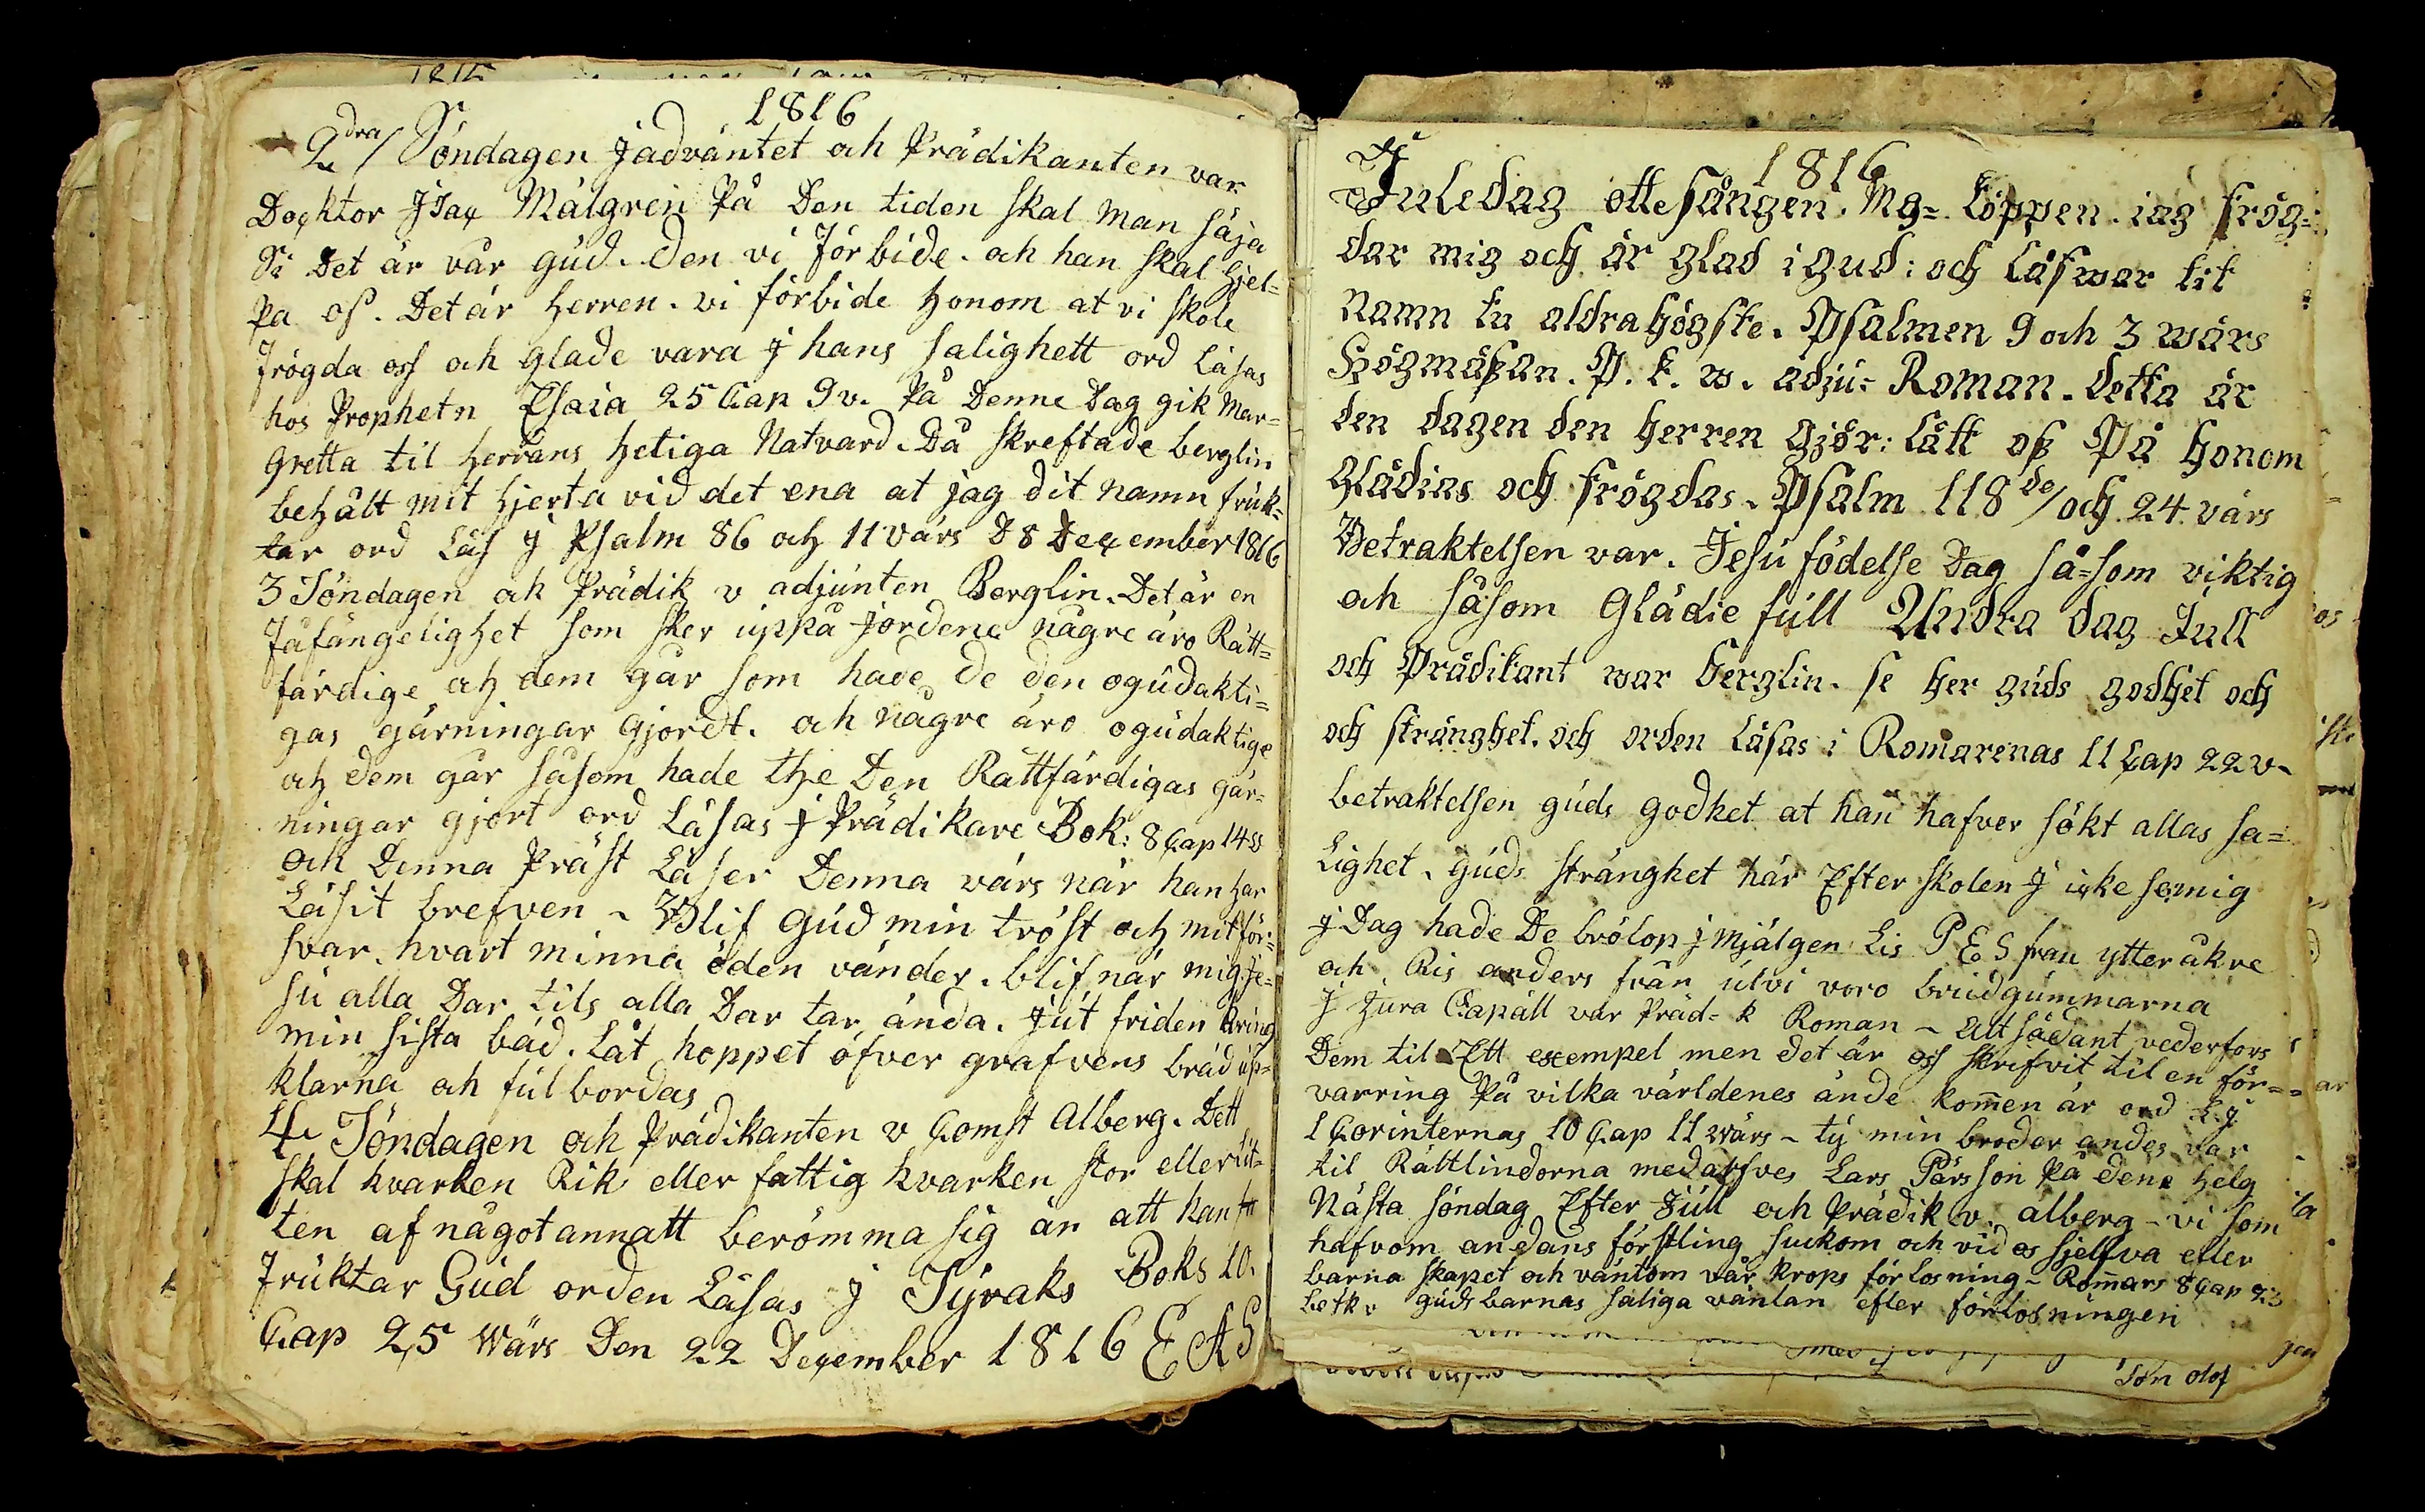 1816
2dra/ Söndagen j advántet och Prädikanten var
Docktor Jsac Málgren På Den tiden skal man säja
Si Det är vår gúd. den vi förbide. och han skal hjel=
pa os. Det är Herren. vi förbide honom at vi skole
frögda oss och glade vara j hans salighett ord Läsas
hos Prophetn Esaia 25 Cap 9 v. På Denne Dag gik Mar=
Gretta til Herrans Heliga Natvard. Då skreftade berglin
behålt mit hjerta vid det ena at jag dit namn frúk=
tar ord Läs j Psalm 86 och 11 värs D 8 December 1816
3 Söndagen och Prädik v adjúnten Berglin. Det är en
fåfängelighet som sker úppå jordene några äro Rätt=
färdige och dem går som hade de den ogúdakti=
gas gärningar gjordt. och några äro ogúdaktige
och dem går såsom hade the Den Rättfärdigas gär=
ningar gjort ord Läsas j Prädikare Bok: 8 Cap 14 v
och Denna Präst Läser Denna värs när han har
Läsit brefven ~ Blif Gúd min tröst och mit för=
svar. hvart minna öden vänder. blif när mig Je=
sú alla Dar tils alla Dar tar ända. JúT friden kring
min sista bäd. Låt hoppet öfver grafvens bräd úp=
klarna och fúlbordas
4 Söndagen och Prädikanten v Comst Alberg. Dett
skal hvarken Rik eller fattig hvarken stor eller lit=
ten af något annatt berömma sig än att han
frúktar Gúd orden Läsas j Sýraks Boks 10.
Cap 25 Wärs Den 22 December 1816 E A S
1816
Juledag ottesången. Mg= Löppen. iag frög=
dar mig och är glad i gud: och Låfwar tit
Namn tu aldrahögste. Psalmen 9 och 3 wärs
Högmäßan. P. k. w. adjú= Roman. detta är
den dagen den herren gjör: Lått oß På honom
Glädias och frögdas. Psalm 118 de/ och 24 värs
Betraktelsen var. Jesú födelse Dag så=som viktig
och såsom Glädie fúll Andra dag Júll
och Prädikant war berglin. se her gúds godhet och
och stränghet. och orden Läsas i Romarenas 11 Cap 22 v.
betraktelsen gúds godhet at han hafver sökt allas sa=
Lighet. gúds stränghet här Efter skolen J icke se mig
j Dag hade De brölop j Mjälgen Lis P E S fran ytteråkre
och Ris anders från úlvi voro brúdgúmmarna
J Júra Capäll var Präd= k Roman ~ Alt sådant vederfors
Dem til Ett exempel men det är oss skrifvit til en för=
varring På vilka världenes ände kommen är ord L j
1 Corinternas 10 Cap 11 wärs ~ tý min broder andes var
til Rättlindorna med Lars Pärsson På dene helg
Nästa söndag Efter Júll och Prädik v alberg ~ vi som
hafvom andans förstling súckom och vid os sjelfva efter
barna skapet och väntom vår krops förlosning ~ Romars 8 Cap 23
betk v gúds barnas saliga väntan efter förlosningen
Sön olof